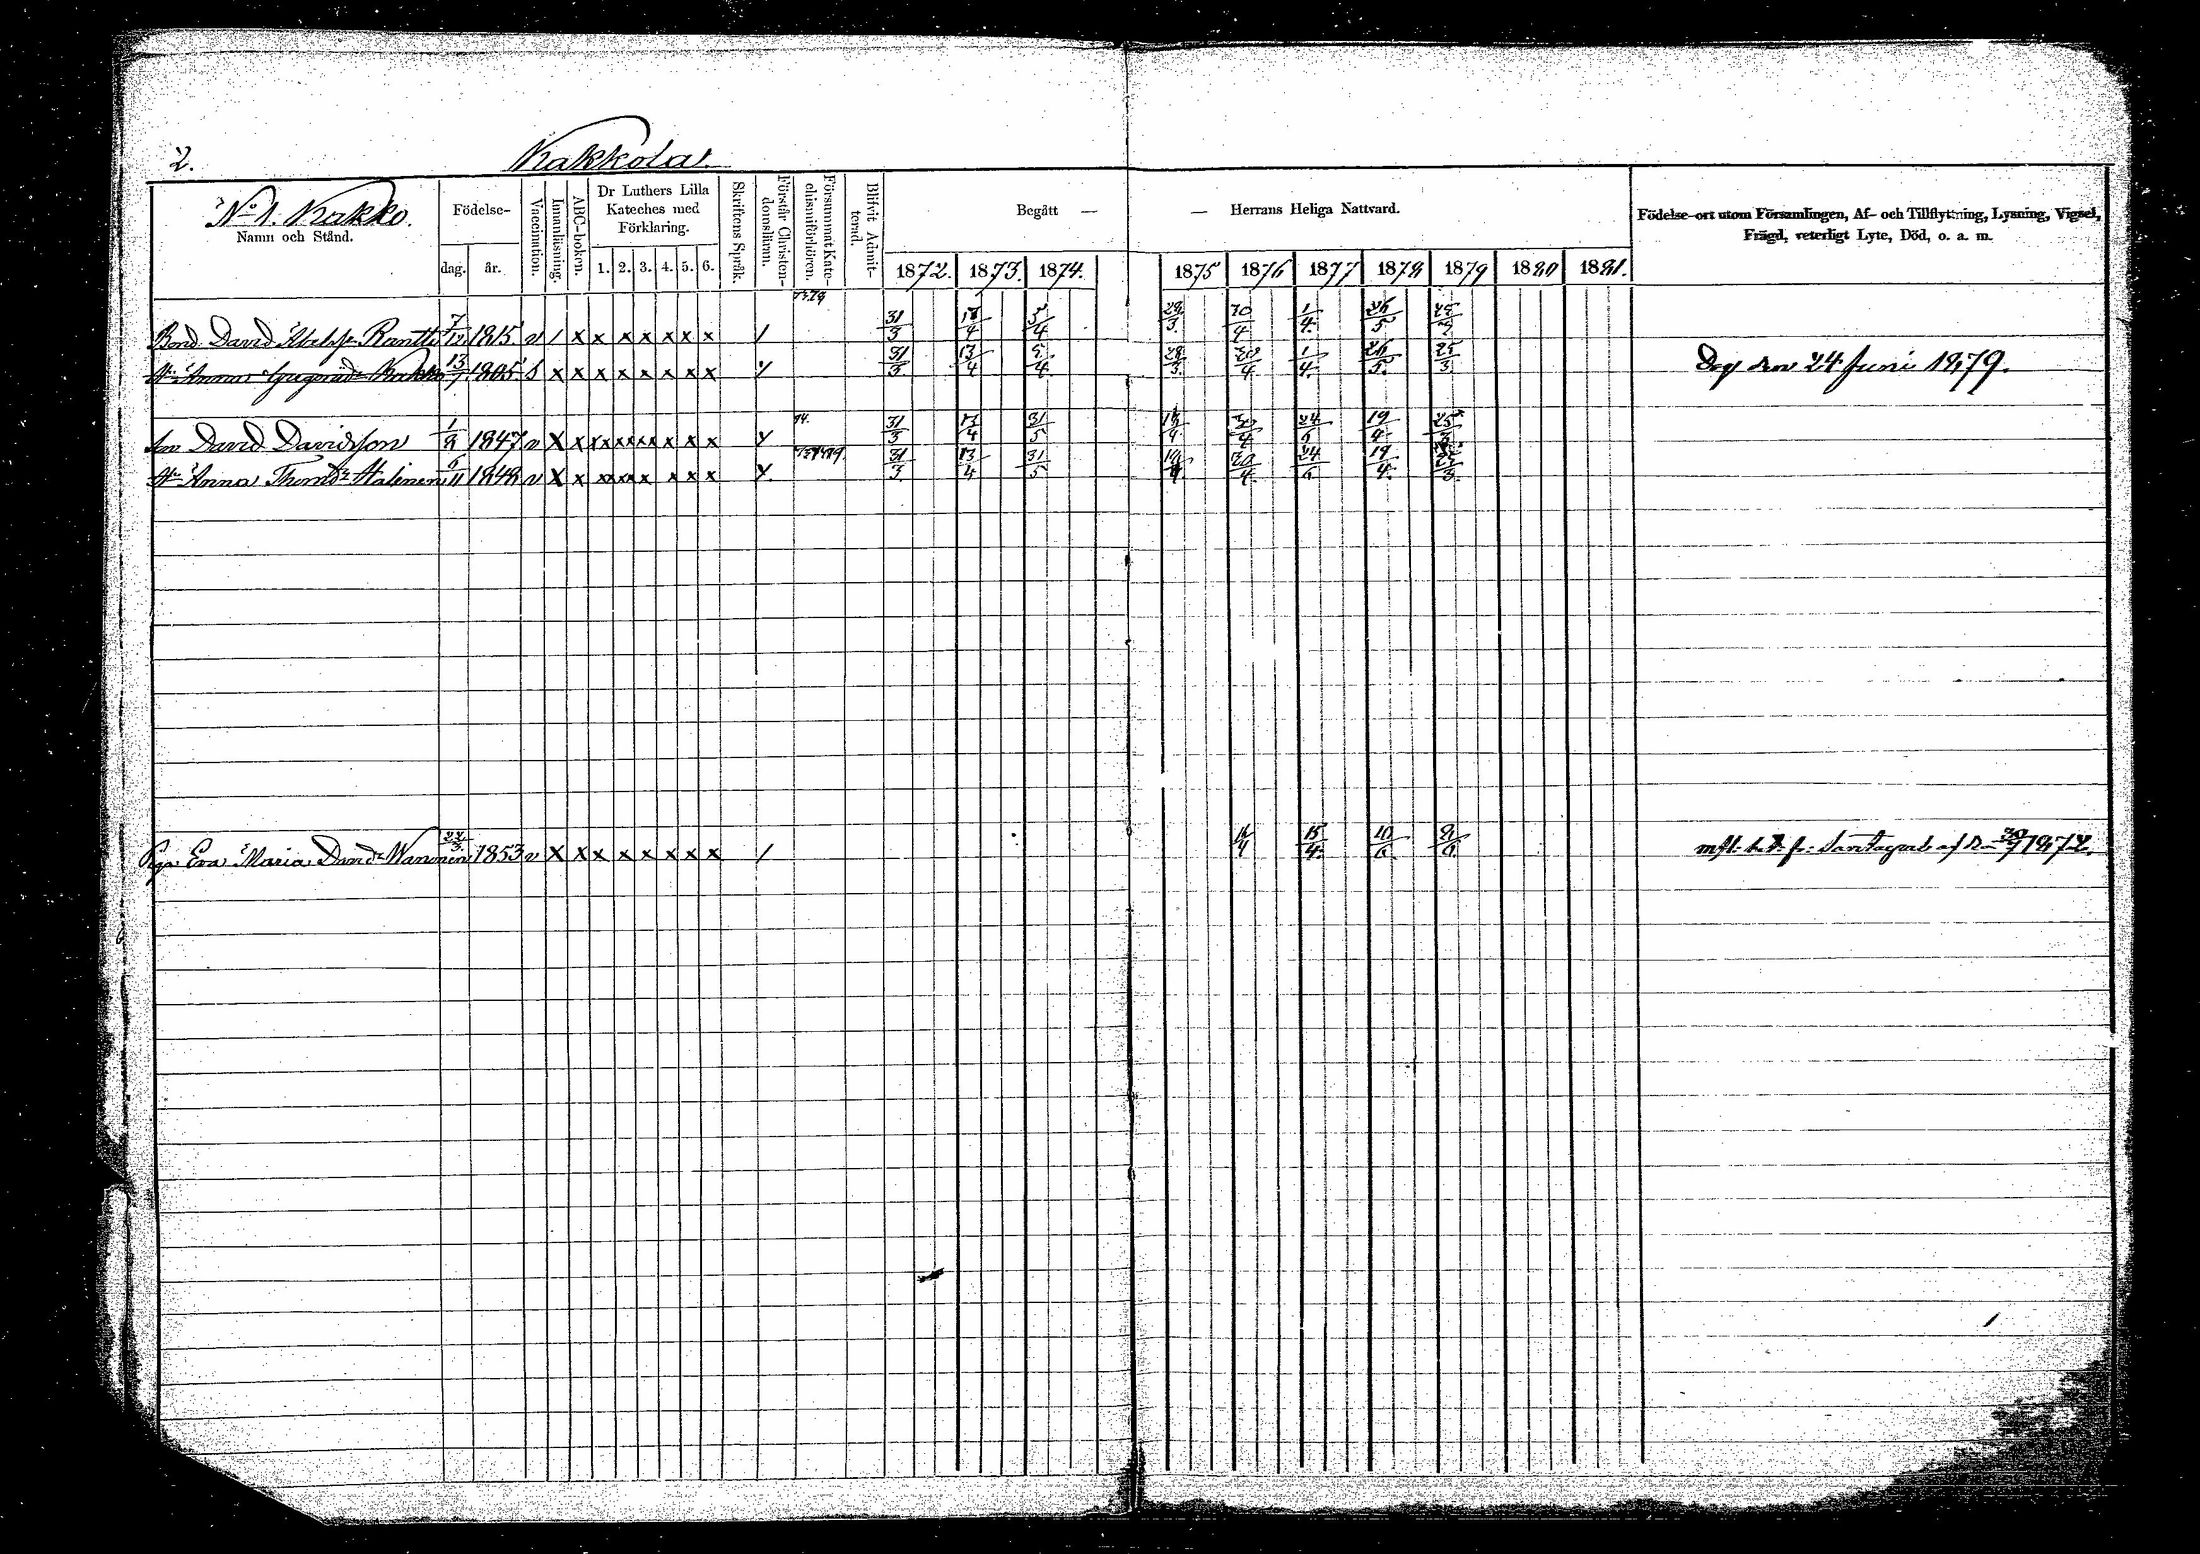 2.
Kakkola.
No 1. Kakko.
Namn och Stånd.
Födelse-
dag.
år.
Vaccination.
Innanläsning.
ABC-boken.
Dr Luthers Lilla
Kateches med
Förklaring.
1. 2. 3. 4. 5. 6.
Skriftens Språk.
Förstår Christen-
domsläran.
Försummat Kate-
chismiförhören.
Blifvit Admit-
terad.
Begått —
— Herrans Heliga Nattvard.
1872. 1873. 1874. 1875 1876 1877 1878 1879 1880 1881.
Födelse-ort utom Församlingen, Af- och Tillflyttning, Lysning, Vigsel,
Frägd, veterligt Lyte, Död, o. a. m.
Bond. David Abelss. Rantti 7/12 1815 v / x x x x x x x / 31/3 5/4 1/4 26/5
Anna Kakko 13/7 1805 x x x x x x x x 31/3 13/4 5/4 30/4 1/4 26/5 25/3 Dog den 24 Juni 1879.
Son David Davidsson 1/2 1847 v X x 74. 31/3 13/4 31/5 30/4 24/6 19/4 25/3
Hu Anna Thomdr Halinen 6/11 1848 v X x 31/3 13/4 31/5 30/4 24/6 19/4 25/3
Piga Eva Maria Davdr Waninen 22/3 1853 v X X x x x x x x / 15/4 10/6 1872.